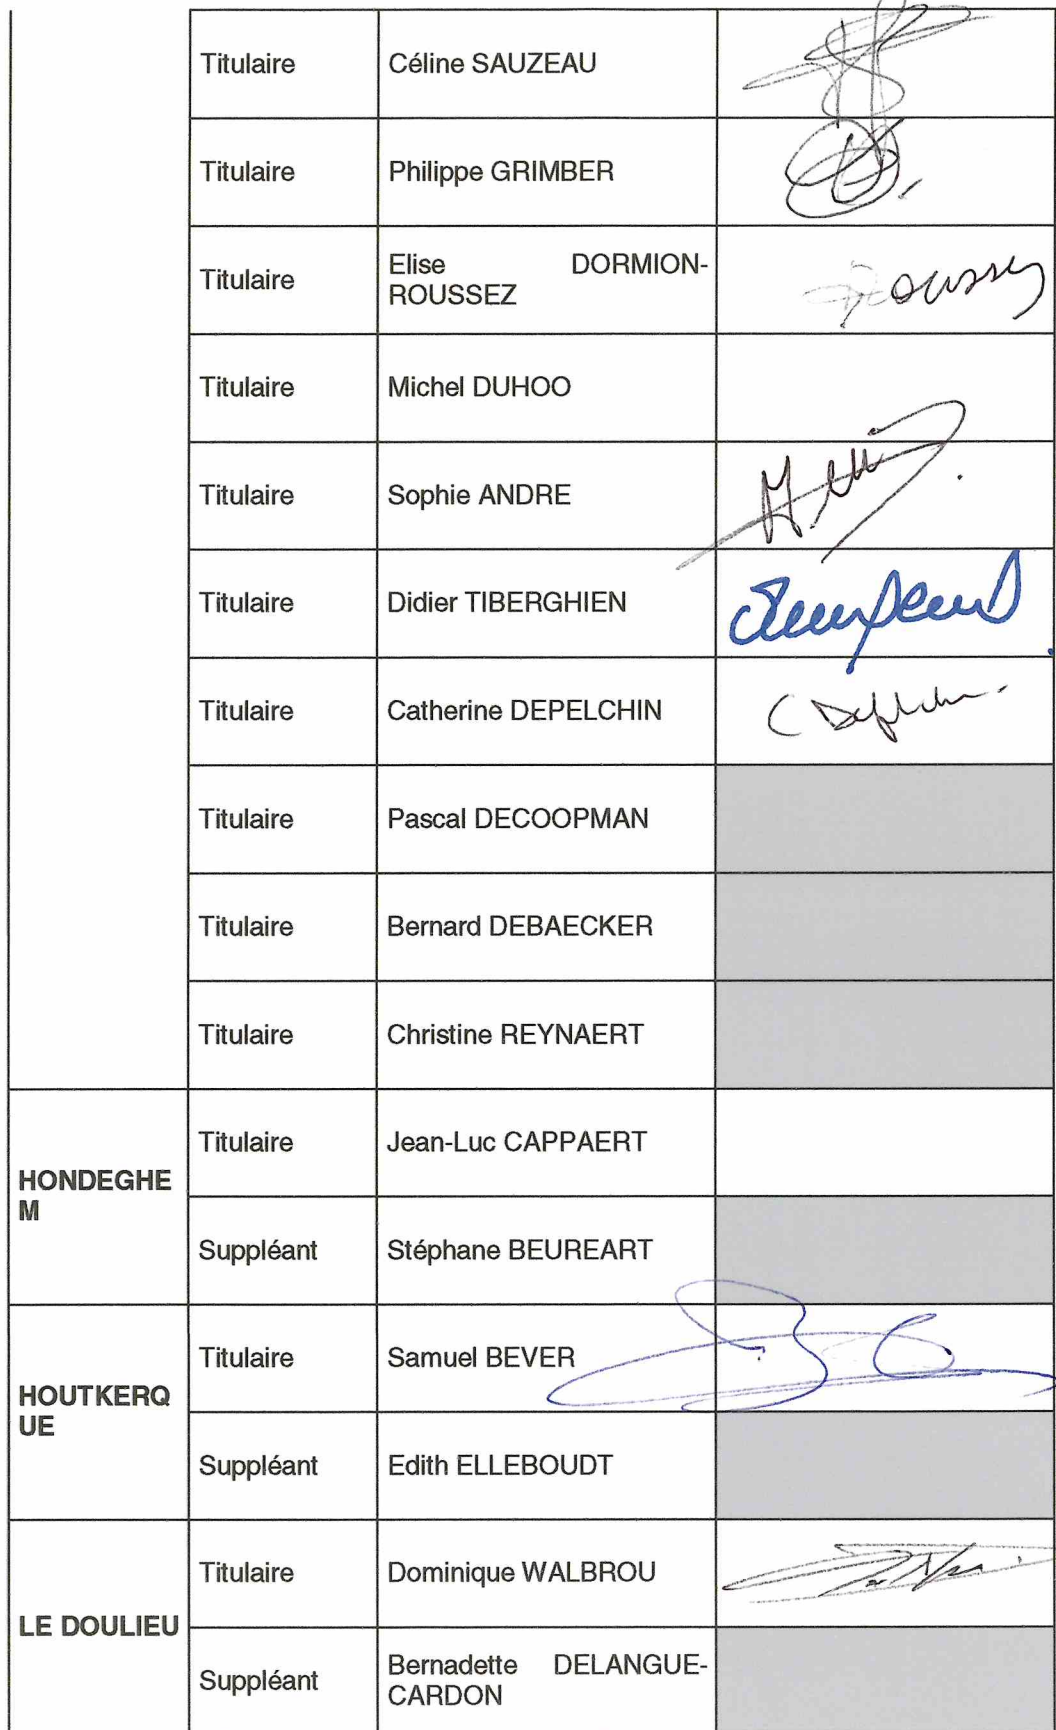 Titulaire Céline SAUZEAU
Titulaire Philippe GRIMBER
Titulaire Elise DORMION-
ROUSSEZ
Titulaire Michel DUHOO
Titulaire Sophie ANDRE
Titulaire Didier TIBERGHIEN
Titulaire Catherine DEPELCHIN
Titulaire Pascal DECOOPMAN
Titulaire Bernard DEBAECKER
Titulaire Christine REYNAERT
HONDEGHE
M
Titulaire Jean-Luc CAPPAERT
Suppléant Stéphane BEUREART
HOUTKERQ
UE
Titulaire Samuel BEVER
Suppléant Edith ELLEBOUDT
LE DOULIEU
Titulaire Dominique WALBROU
Suppléant Bernadette DELANGUE-
CARDON